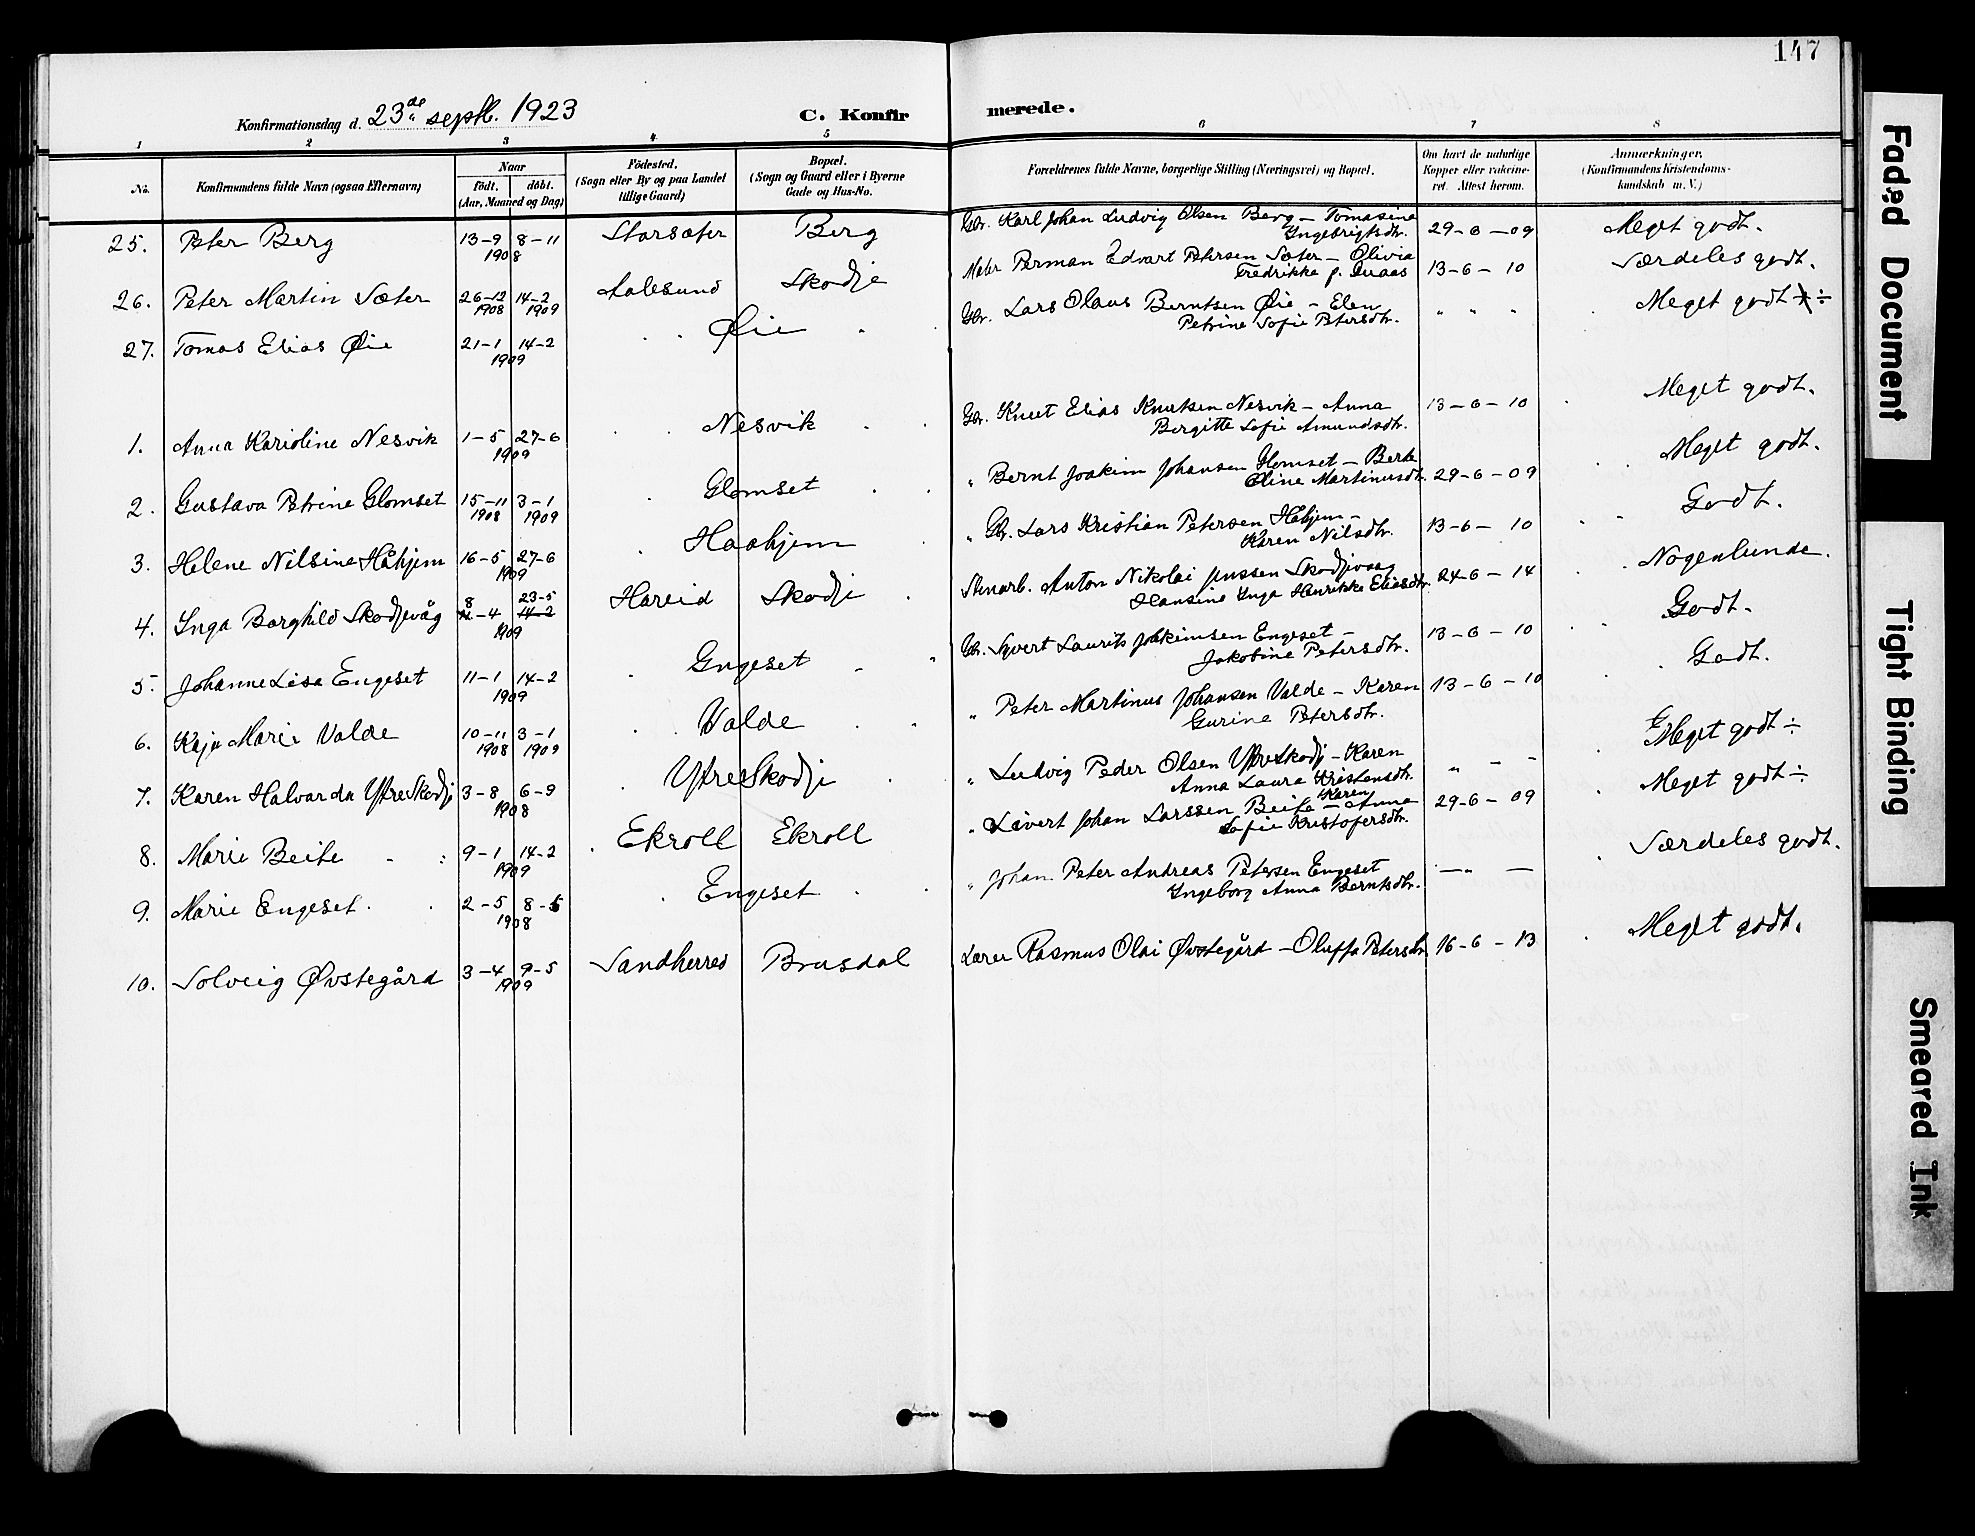 147
Konfirmationsdag d. 23de septb. 1923
C. Konfirmerede.
1 2 3 4 5 6 7 8
No.
Konfirmandens fulde Navn (ogsaa Efternavn)
Naar
födt. döbt.
(Aar, Maaned og Dag)
Födested.
(Sogn eller By og paa Landet
tillige Gaard)
Bopæl.
(Sogn og Gaard eller i Byerne
Gade og Hus-No.
Forældrenes fulde Navne, borgerlige Stilling (Næringsvei) og Bopæl.
Om havt de naturlige
Kopper eller vakcine-
ret. Attest herom.
Anmærkninger,
(Konfirmandens Kristendoms-
kundskab m. V.)
25. Peter Berg 13-9 8-11 1908 Storsæter Berg Gbr. Karl Johan Ludvig Olsen Berg - Tomasine
Ingebrigtsdtr. 29-6-09 Meget godt.
26. Peter Martin Sæter 26-12 1908 14-2 1909 Aalesund Skodje Maler Perman Edvart Petersen Sæter - Olivia
Fredrikke 13-6-10 Særdeles godt.
27. Tomas Elias Øie 21-1 14-2 1909 Øie Gbr. Lars Olaus Berntsen Øie - Elen
Petrine Sofie Petersdtr. " " " Meget godt ÷
1. Anna Karioline Nesvik 1-5 27-6 1909 Nesvik Gbr. Knut Elias Knutsen Nesvik - Anna
Bergitte Sofie Amundsdtr. 13-6-10 Meget godt.
2. Gustava Petrine Glomset 15-11 1908 3-1 1909 Glomset " Bernt Joakim Johansen Glomset - Berte
Oline Martinusdtr. 29-6-09 Meget godt.
3. Helene Nilsine Håhjem 16-5 27-6 1909 Haahjem " Gbr. Lars Kristian Petersen Håhjem -
Karen Nilsdtr. 13-6-10 Godt.
4. Inga Borghild Skodjevåg 8-4 23-5 14-2 1909 Hareid Skodje Stenarb. Anton Nikolai Jussen Skodjevaag
Hansine Inga Henrikke Eliasdtr. 24-6-14 Nogenlunde.
Godt.
5. Johanne Lisa Engeset 11-1 14-2 1909 Engeset Gbr. Syvert Laurits Joakimsen Engeset -
Jakobine Petersdtr. 13-6-10 Godt.
6. Kaja Marie Valde 10-11 1908 3-1 1909 Valde " Peter Martinus Johansen Valde - Karen
Gurine Petersdtr. 13-6-10
7. Karen Halvarda Ytreskodje 3-8 6-9 1908 Ytreskodje " Ludvig Peder Olsen Ytreskodj - Karen
Anna Laura Kristensdtr. " - - Meget godt ÷
8. Marie Beite - : 9-1 14-2 1909 Ekroll Ekroll " Sivert Johan Larssen Beite - Karen Anna
Sofie Kristofersdtr. 29-6-09 Meget godt ÷
9. Marie Engeset. 2-5 8-6 1908 Engeset " Johan Peter Andreas Petersen Engeset
Ingeborg Anna Berntsdtr. - " - Særdeles godt.
10. Solveig Øvstegård 3-4 9-5 1909 Sandherred Brusdal Lærer Rasmus Olai Øvstegård - Oluffa Petersdtr. 16-6-13 Meget godt.
Faded Document
Tight Binding
Smeared Ink